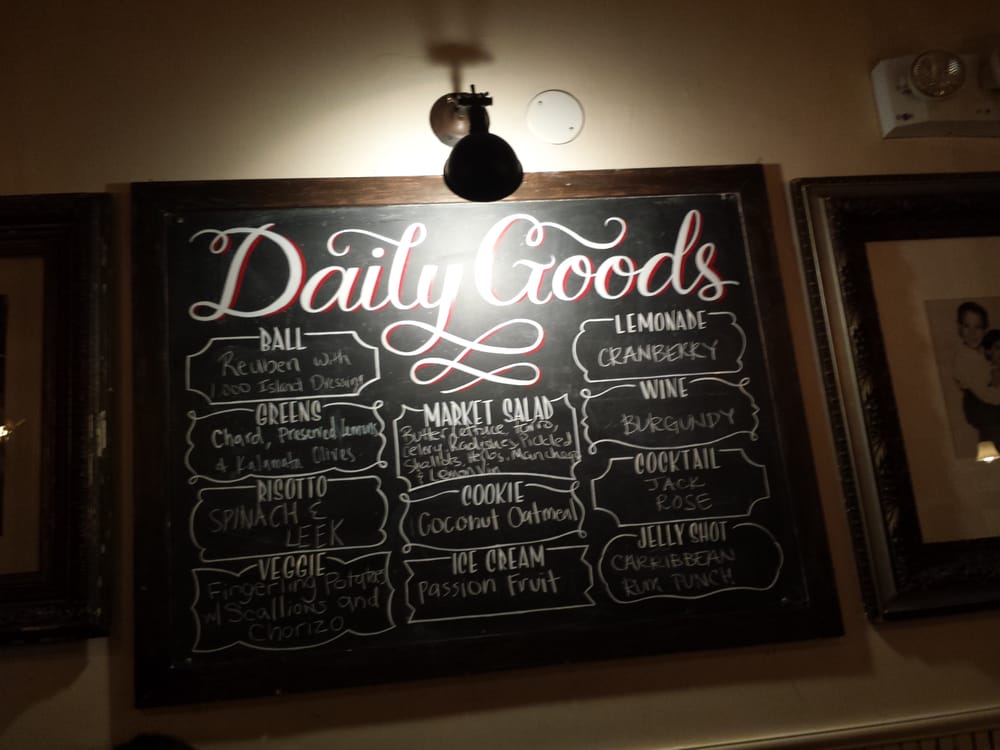 Daily Goods
BALL
Reuben with
1,000 Island Dressing
GREENS
Chard, Preserved Lemons,
& Kalamata Olives
RISOTTO
SPINACH &
LEEK
VEGGIE
Fingerling Potatoes
w/ Scallions and
Chorizo
MARKET SALAD
Butter Lettuce, Farro,
Celery, Radishes, Pickled
Shallots, Herbs, Manchego
& Lemon Vin
COOKIE
Coconut Oatmeal
ICE CREAM
Passion Fruit
LEMONADE
CRANBERRY
WINE
BURGUNDY
COCKTAIL
JACK
ROSE
JELLY SHOT
CARRIBBEAN
RUM PUNCH